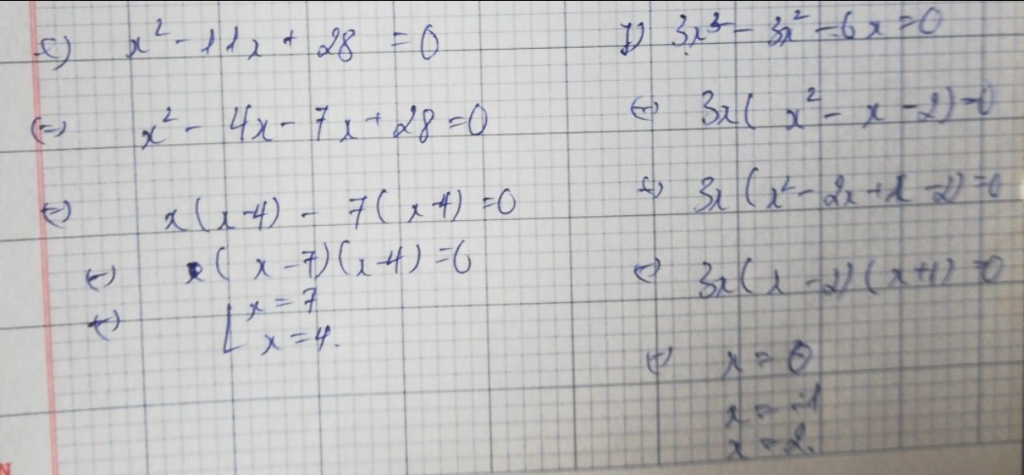 e) x² - 11x + 28 = 0
⇔ x² - 4x - 7x + 28 = 0
⇔ x(x-4) - 7(x-4) = 0
⇔ (x-7)(x-4) = 0
⇔ [ x = 7
x = 4.
3x³ - 3x² - 6x = 0
⇔ 3x(x² - x - 2) = 0
⇔ 3x(x² - 2x + x - 2) = 0
⇔ 3x(x-2)(x+1) = 0
⇔ x = 0
x = -1
x = 2.